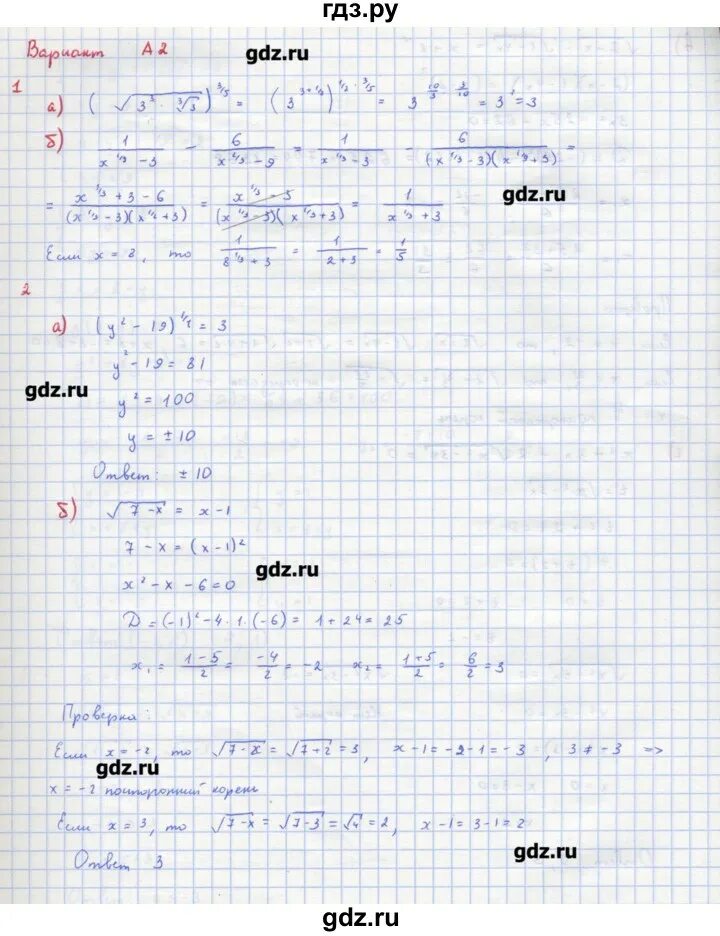 гдз.ру
Вариант А2
gdz.ru
1
а) ( √(3³ · ∛3) )^(3/5) = ( 3^(3+1/3) )^(1/2 · 3/5) = 3^(10/3 · 3/10) = 3¹ = 3
б) 1/(x^(1/3) − 3) − 6/(x^(2/3) − 9) = 1/(x^(1/3) − 3) − 6/((x^(1/3) − 3)(x^(1/3) + 3)) =
gdz.ru
= (x^(1/3) + 3 − 6)/((x^(1/3) − 3)(x^(1/3) + 3)) = (x^(1/3) − 3)/((x^(1/3) − 3)(x^(1/3) + 3)) = 1/(x^(1/3) + 3)
Если x = 8, то 1/(8^(1/3) + 3) = 1/(2 + 3) = 1/5
2
а) (y² − 19) = 3
y² − 19 = 81
gdz.ru
y² = 100
y = ± 10
Ответ: ± 10
б) √(7 − x) = x − 1
7 − x = (x − 1)²
gdz.ru
x² − x − 6 = 0
D = (−1)² − 4 · 1 · (−6) = 1 + 24 = 25
x₁ = (1 − 5)/2 = −4/2 = −2 x₂ = (1 + 5)/2 = 6/2 = 3
Проверка:
Если x = −2, то √(7 − x) = √(7 + 2) = 3, x − 1 = −2 − 1 = −3, 3 ≠ −3 =>
gdz.ru
x = −2 посторонний корень
Если x = 3, то √(7 − x) = √(7 − 3) = √4 = 2, x − 1 = 3 − 1 = 2
gdz.ru
Ответ 3
gdz.ru